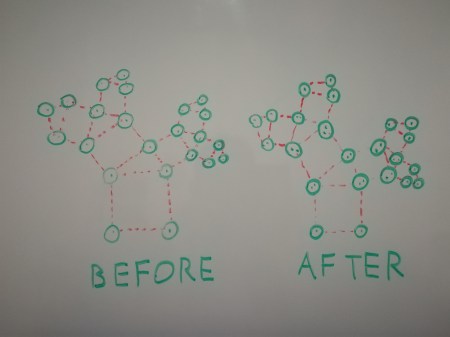 BEFORE
AFTER